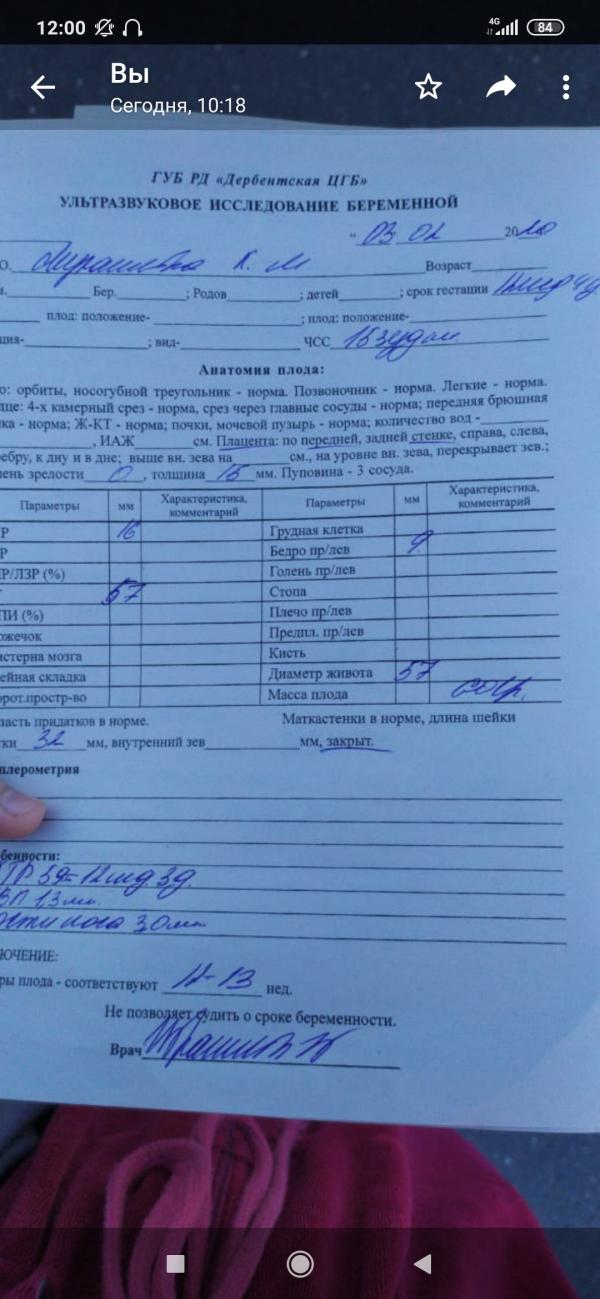 12:00 4G 84
Вы
Сегодня, 10:18
ГУБ РД «Дербентская ЦГБ»
УЛЬТРАЗВУКОВОЕ ИССЛЕДОВАНИЕ БЕРЕМЕННОЙ
" 03 02 20
О. К. М Возраст
Бер. ; Родов ; детей ; срок гестации
плод: положение- ; плод: положение-
ция- ; вид- ЧСС
Анатомия плода:
о: орбиты, носогубной треугольник - норма. Позвоночник - норма. Легкие - норма.
дце: 4-х камерный срез - норма, срез через главные сосуды - норма; передняя брюшная
ка - норма; Ж-КТ - норма; почки, мочевой пузырь - норма; количество вод -
, ИАЖ см. Плацента: по передней, задней стенке, справа, слева,
ебру, к дну и в дне; выше вн. зева на см., на уровне вн. зева, перекрывает зев.;
ень зрелости 0, толщина 15 мм. Пуповина - 3 сосуда.
Параметры мм Характеристика, комментарий Параметры мм Характеристика, комментарий
Р 16 Грудная клетка
Р Бедро пр/лев 9
Р/ЛЗР (%) Голень пр/лев
57 Стопа
ПИ (%) Плечо пр/лев
ожечок Предпл. пр/лев
истерна мозга Кисть
ейная складка Диаметр живота 57
орот.простр-во Масса плода
ласть придатков в норме. Маткастенки в норме, длина шейки
тки 32 мм, внутренний зев мм, закрыт.
плерометрия
бенности:
ТР 59= 12нед 3д.
ВП 1,3мм.
ости носа 3,0мм
ЮЧЕНИЕ:
ры плода - соответствуют 12-13 нед.
Не позволяет судить о сроке беременности.
Врач